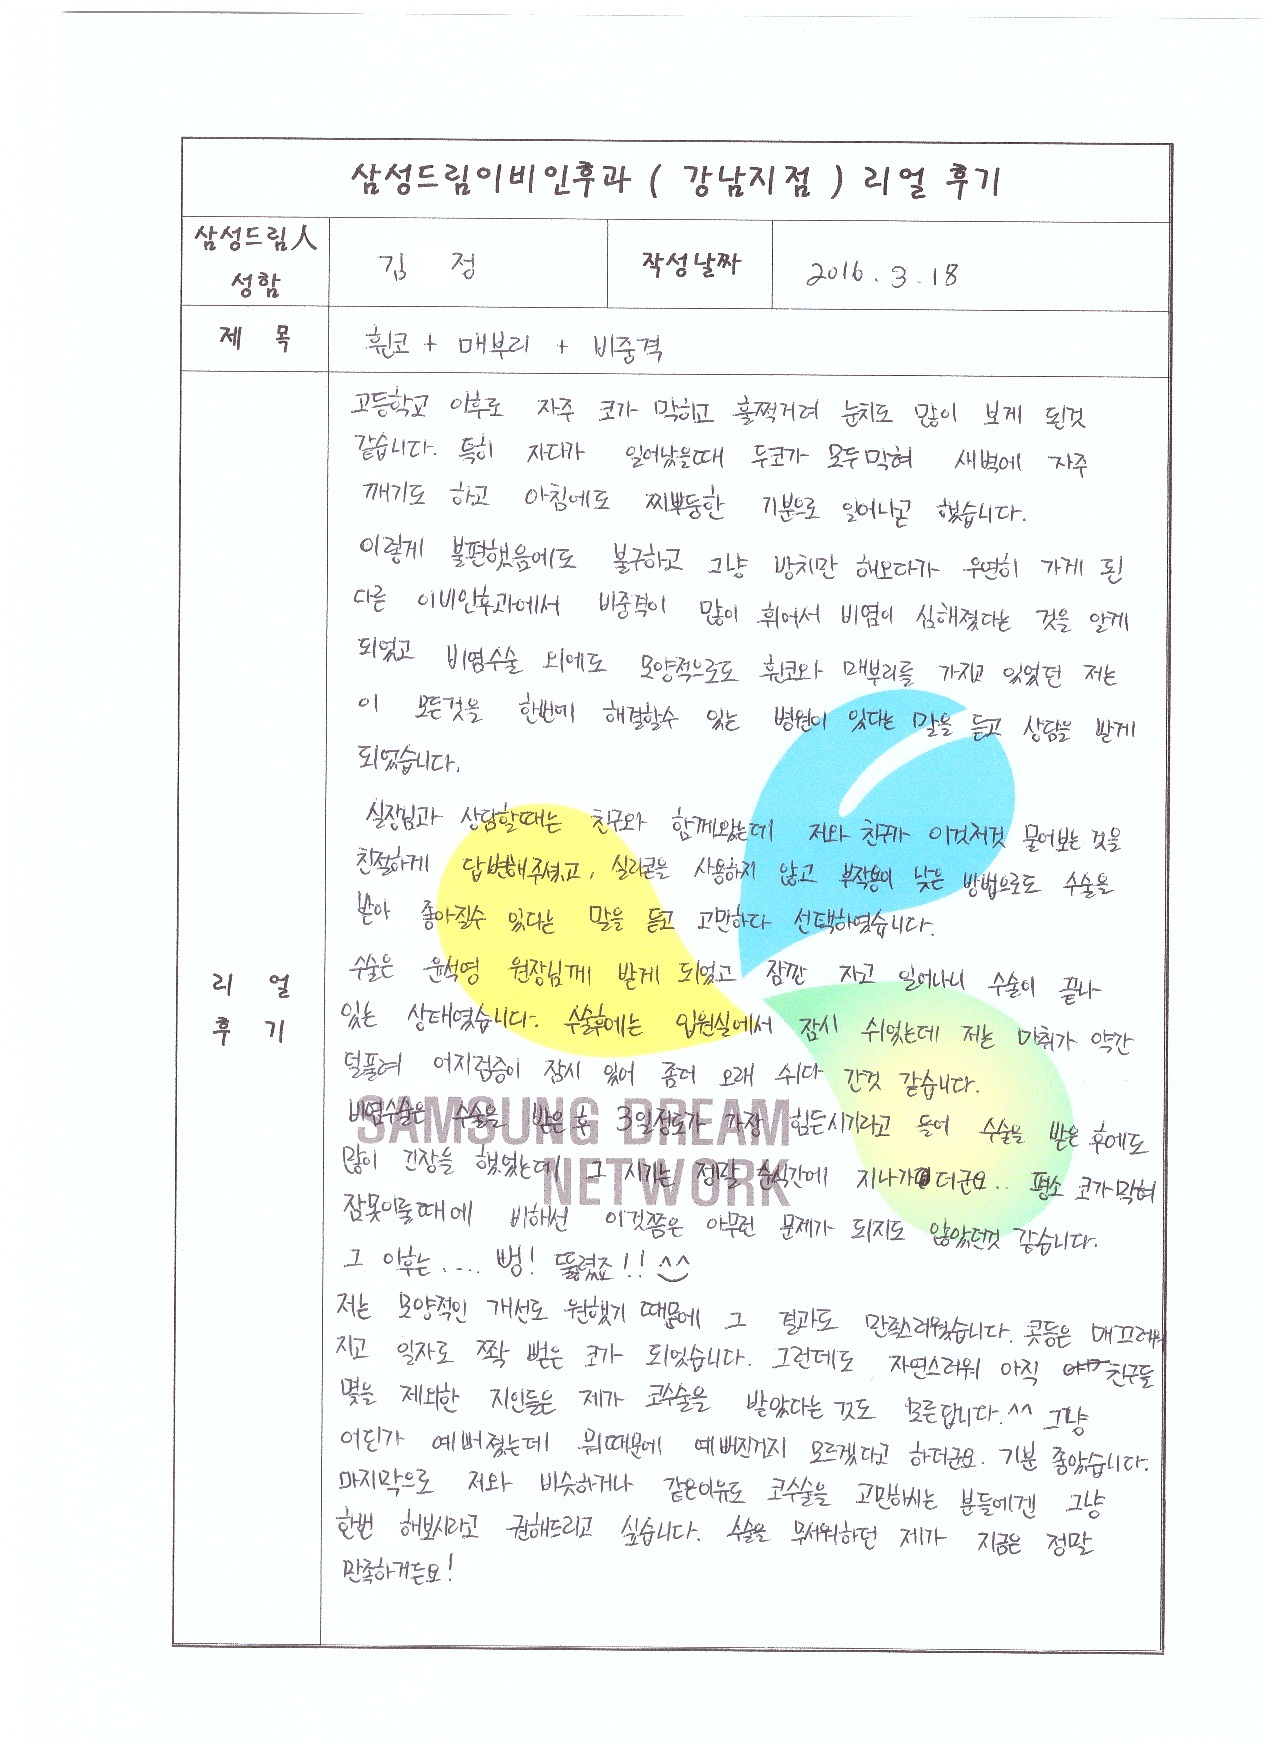 삼성드림이비인후과 ( 강남지점 ) 리얼 후기
삼성드림人 성함
김 정
작성날짜
2016. 3. 18
제 목
휜코 + 매부리 + 비중격
리 얼 후 기
고등학교 이후로 자주 코가 막히고 훌쩍거려 눈치도 많이 보게 된것
같습니다. 특히 자다가 일어났을때 두코가 모두막혀 새벽에 자주
깨기도 하고 아침에도 찌뿌둥한 기분으로 일어나곤 했습니다.
이렇게 불편했음에도 불구하고 그냥 방치만 해오다가 우연히 가게 된
다른 이비인후과에서 비중격이 많이 휘어서 비염이 심해졌다는 것을 알게
되었고 비염수술 외에도 모양적으로도 휜코와 매부리를 가지고 있었던 저는
이 모든것을 한번에 해결할수 있는 병원이 있다는 말을 듣고 상담을 받게
되었습니다.
실장님과 상담할때는 친구와 함께왔는데 저와 친구가 이것저것 물어보는 것을
친절하게 답변해주셨고, 실리콘을 사용하지 않고 부작용이 낮은 방법으로도 수술을
받아 좋아질수 있다는 말을 듣고 고민하다 선택하였습니다.
수술은 윤석영 원장님께 받게 되었고 잠깐 자고 일어나니 수술이 끝나
있는 상태였습니다. 수술후에는 입원실에서 잠시 쉬었는데 저는 마취가 약간
덜풀려 어지럼증이 잠시 있어 좀더 오래 쉬다 간것 같습니다.
비염수술은 수술을 받은후 3일정도가 가장 힘든시기라고 들어 수술을 받은 후에도
많이 긴장을 했었는데 그 시기는 정말 순식간에 지나가더군요.. 평소 코가막혀
잠못이룰때에 비해선 이것쯤은 아무런 문제가 되지도 않았던것 같습니다.
그 이후는.... 뻥! 뚫렸죠!! ^^
저는 모양적인 개선도 원했기 때문에 그 결과도 만족스러웠습니다. 콧등은 매끄러워
지고 일자로 쫙 뻗은 코가 되었습니다. 그런데도 자연스러워 아직 친구들
몇을 제외한 지인들은 제가 코수술을 받았다는 것도 모른답니다.^^ 그냥
어딘가 예뻐졌는데 뭐때문에 예뻐진거지 모르겠다고 하더군요. 기분 좋았습니다.
마지막으로 저와 비슷하거나 같은이유로 코수술을 고민하시는 분들에겐 그냥
한번 해보시라고 권해드리고 싶습니다. 수술을 무서워하던 제가 지금은 정말
만족하거든요!
SAMSUNG DREAM
NETWORK